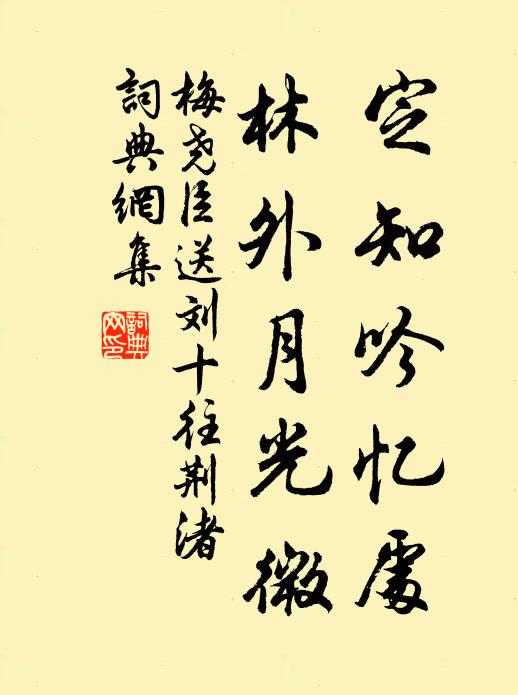 定知吟忆處
林外月光微
梅尧臣送刘十往荆渚
詞典網集
詞典网印